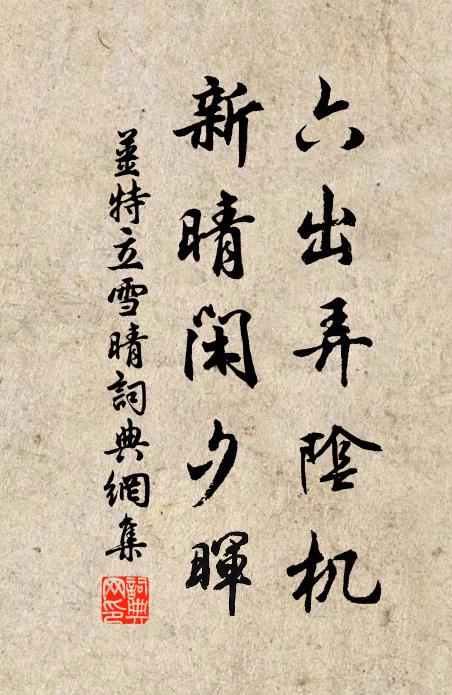 六出弄陰机
新晴閑夕暉
姜特立雪晴詞典網集
詞典网印